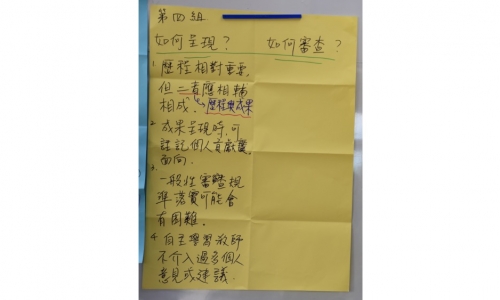 第四組
如何呈現？ 如何審查？
1. 歷程相對重要,
但二者應相輔
相成. → 歷程與成果
2. 成果呈現時,可
註記個人貢獻度、
面向.
3.
一般性審查規
準落實可能會
有困難.
4. 自主學習教師
不介入過多個人
意見或建議.